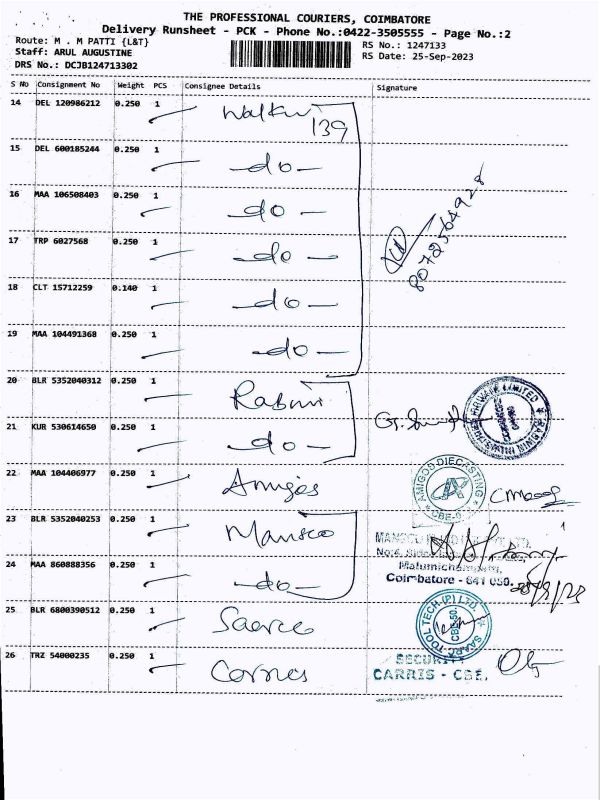 THE PROFESSIONAL COURIERS, COIMBATORE
Delivery Runsheet - PCK - Phone No.:0422-3505555 - Page No.:2
Route: M . M PATTI {L&T}
RS No.: 1247133
Staff: ARUL AUGUSTINE
RS Date: 25-Sep-2023
DRS No.: DCJB124713302
S No Consignment No Weight PCS Consignee Details Signature
14 DEL 120986212 0.250 1
139
15 DEL 600185244 0.250 1 -do-
16 MAA 106508403 0.250 1 -do-
17 TRP 6027568 0.250 1 -do-
8072564928
18 CLT 15712259 0.140 1 -do-
19 MAA 104491368 0.250 1 -do-
20 BLR 5352040312 0.250 1
21 KUR 530614650 0.250 1 -do-
22 MAA 104406977 0.250 1 Amigos
AMIGOS DIECASTING
23 BLR 5352040253 0.250 1 Mansco
24 MAA 860888356 0.250 1 -do-
Coimbatore - 641 050.
25 BLR 6800390512 0.250 1
SAARC TOOL TECH (P) LTD
26 TRZ 54000235 0.250 1
SECURITY
CARRIS - CBE.